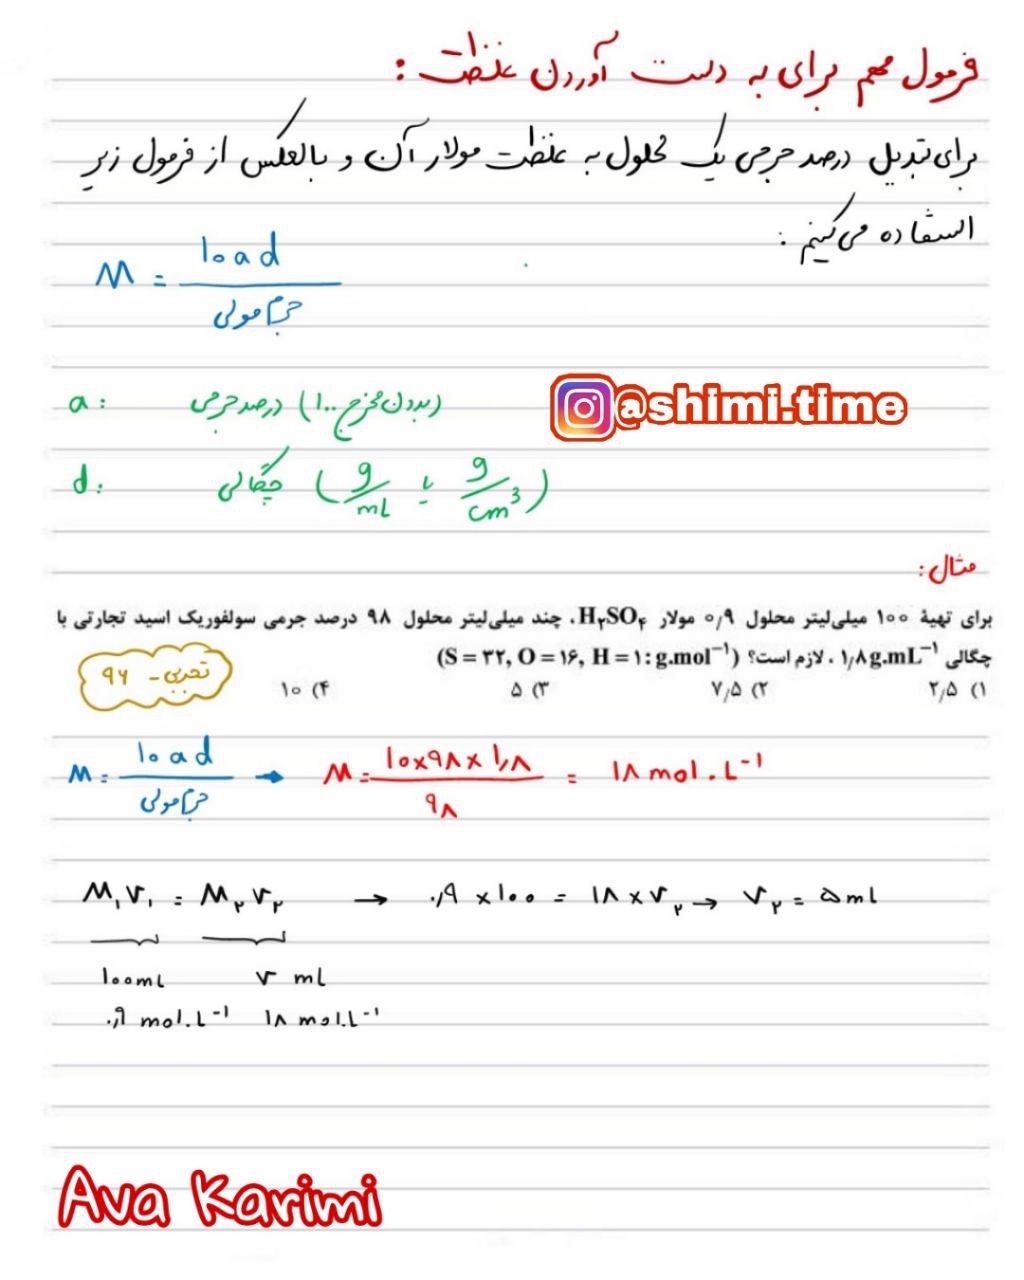 فرمول مهم برای به دست آوردن غلظت :
برای تبدیل درصد جرمی یک محلول به غلظت مولار آن و بالعکس از فرمول زیر
استفاده می‌کنیم :
M = ۱۰ad / جرم مولی
a: درصد جرمی (بدون مخرج ۱۰۰)
@shimi.time
d: چگالی (g/mL یا g/cm³)
مثال:
برای تهیهٔ ۱۰۰ میلی‌لیتر محلول ۰٫۹ مولار H₂SO₄، چند میلی‌لیتر محلول ۹۸ درصد جرمی سولفوریک اسید تجارتی با
چگالی ۱٫۸g.mL⁻¹، لازم است؟ (S = ۳۲, O = ۱۶, H = ۱ : g.mol⁻¹)
۱) ۲٫۵ ۲) ۷٫۵ ۳) ۵ ۴) ۱۰
تجربی - ۹۶
M = ۱۰ad / جرم مولی → M = ۱۰×۹۸×۱٫۸ / ۹۸ = ۱۸ mol.L⁻¹
M₁V₁ = M₂V₂ → ۰٫۹ × ۱۰۰ = ۱۸ × V₂ → V₂ = ۵ml
۱۰۰ml V ml
۰٫۹ mol.L⁻¹ ۱۸ mol.L⁻¹
Ava Karimi